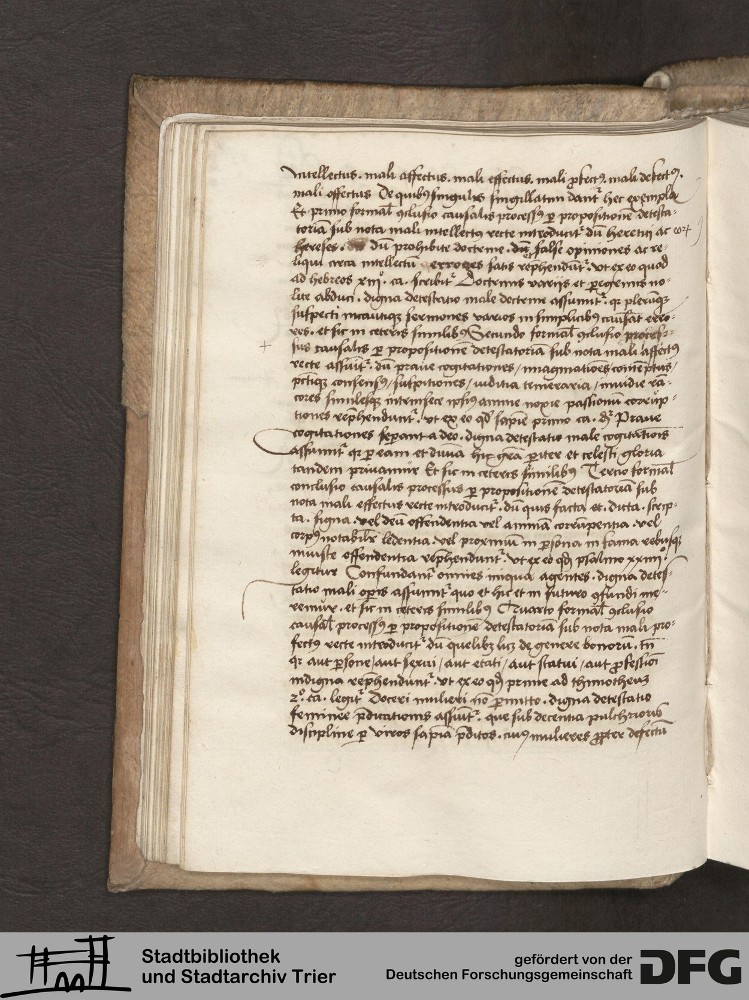 intellectus. mali affectus. mali effectus. mali ꝓfectꝰ. mali defectꝰ.
mali offectus De quibꝰ singulis singillatim dant᷑ hec exempla
Et primo formal̄ ꝯclusio causalis processꝰ ꝑ propositionē detesta-
toriā sub nota mali intellectꝰ recte introducit᷑ dū heretici ac
hereses. dū prohibite doctrine. dū false opiniones ac re-
liqui circa intellectū errores satis rep̄hendūt᷑. vt ex eo quod
ad hebreos xiijº. ca. scribit᷑ Doctrinis varijs et ꝑegrinis no-
lite abduci. digna detestatio male doctrine assumit᷑. qꝛ plerūqꝫ
suspecti incautiqꝫ sermones varios in simplicibꝰ causāt erro-
res. et sic in ceteris similibꝰ Secundo formal̄ ꝯclusio proces-
sus causalis ꝑ propositionē detestatoriā sub nota mali affectꝰ
recte assūit᷑. dū praue cogitationes, imaginationes, contēptus,
consensꝰ, suspitiones, iudicia temeraria, inuidie rā-
cores similesqꝫ intrinsece ipsiꝰ anime noxie passionū corrup-
tiones rep̄hendunt᷑. vt ex eo qđ sapiē primo ca. dꝛ Praue
cogitationes seꝑant a deo. digna detestatio male cogitationis
assumit᷑ qꝛ ꝑ eam et diuīa hic grā pariter et celesti gloria
tandem priuamur Et sic in ceteris similibꝰ Tercio formal̄
conclusio causalis processus ꝑ propositionē detestatoriā sub
nota mali effectus recte introducit᷑. dū quis facta et. dicta. scrip-
ta. signa. vel deū offendentia vel animā corrūpentia. vel
corpꝰ notabilr̄ ledentia. vel proximū in ꝑsona in fama rebusqꝫ
iniuste offendentia rep̄hendunt᷑. vt ex eo qđ psalmo xxiiijº.
legitur Confundant᷑ omnes iniqua agentes. digna detes-
tatio mali oꝑis assumit᷑ quo et hic et in futuro ꝯfundi me-
remur. et sic in ceteris similibꝰ Quarto formal̄ ꝯclusio
causal̄ processꝰ ꝑ propositionē detestatoriā sub nota mali pro-
fectꝰ recte introducit᷑ dū quelibꝫ licꝫ de genere bonorū. tn̄
qꝛ aut ꝑsone, aut sexui, aut etati, aut statui, aut ꝓfessioni
indigna rep̄hendunt᷑. vt ex eo qđ prime ad thimotheū
2º. ca. legit᷑ Doceri mulieri nō ꝑmitto. digna detestatio
feminee p̄dicationis assūit᷑. que sub decentia pulchrioris
discipline ꝑ viros sapiā p̄ditos. cuiꝰ mulieres ꝓpter defectū
Stadtbibliothek
und Stadtarchiv Trier
gefördert von der
Deutschen Forschungsgemeinschaft
DFG